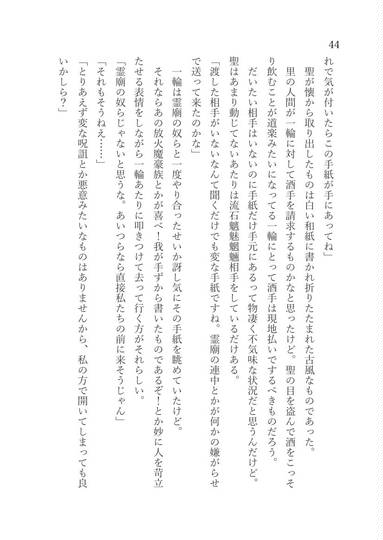 44
れで気が付いたらこの手紙が手にあってね」
　聖が懐から取り出したものは白い和紙に書かれ折りたたまれた古風なものであった。
　里の人間が一輪に対して酒手を請求するものかなと思ったけど。聖の目を盗んで酒をこっそ
り飲むことが道楽みたいになってる一輪にとって酒手は現地払いでするべきものだろう。
　だいたい相手はいないのに手紙だけ手元にあるって物凄く不気味な状況だと思うんだけど。
聖はあまり動じてないあたりは流石魑魅魍魎相手をしているだけある。
「渡した相手がいないなんて聞くだけでも変な手紙ですね。霊廟の連中とかが何かの嫌がらせ
で送って来たのかな」
　一輪は霊廟の奴らと一度やり合ったせいか訝し気にその手紙を眺めていたけど。
　それならあの放火魔豪族とかが喜べ！我が手ずから書いたものであるぞ！とか妙に人を苛立
たせる表情をしながら一輪あたりに叩きつけて去って行く方がそれらしい。
「霊廟の奴らじゃないと思うな。あいつらなら直接私たちの前に来そうじゃん」
「それもそうねえ……」
「とりあえず変な呪詛とか悪意みたいなものはありませんから、私の方で開いてしまっても良
いかしら？」